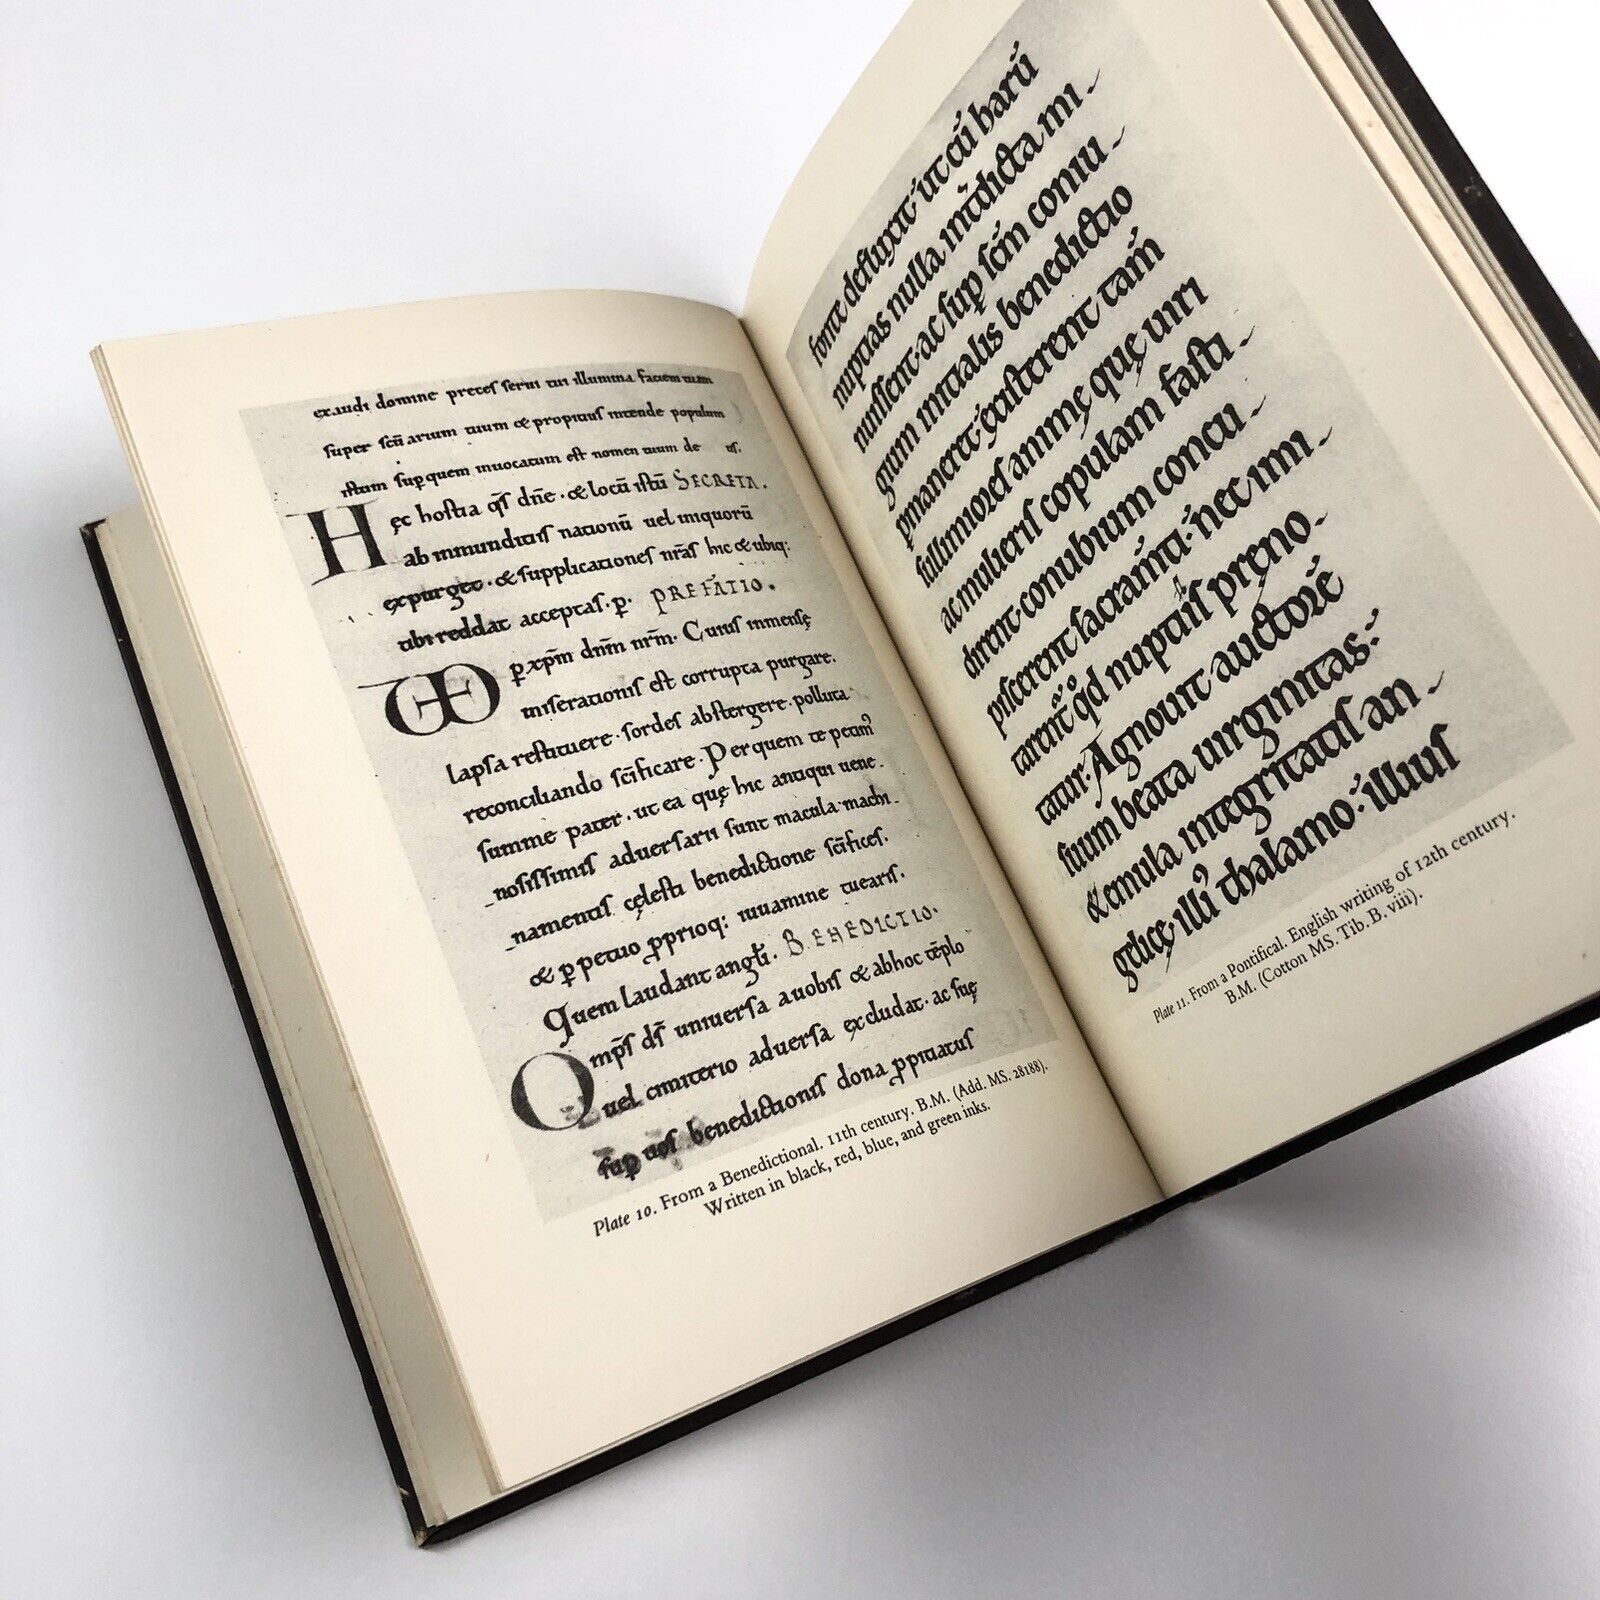 exaudi domine preces serui tui illumina faciem tuam
super scū arium tuum & propitius intende populum
istum sup quem inuocatum est nomen tuum de us.
Hęc hostia qs dn̄e · & locū istū SECRETA.
ab inmunditiis nationū uel iniquorū
expurget · & supplicationes nr̄as hic & ubiq:
tibi reddat acceptas . p. PREFATIO.
p xp̄m dn̄m nr̄m. Cuius inmensę
miserationis est corrupta purgare.
lapsa restituere · sordes abstergere · polluta
reconciliando sc̄ificare. Per quem te petim᷒
summe pater · ut ea quę hic antiqui uene-
nosissimis aduersarii sunt macula · machi-
namentis cęlesti benedictione sc̄ifices.
& p petuo p prioq: iuuamine tuearis.
Quem laudant angli. BENEDICTIO.
Omp̄s ds̄ uniuersa a uobis & ab hoc tēplo
uel cimiterio aduersa excludat · ac suę
sup uos benedictionis dona p pitiatus
Plate 10. From a Benedictional. 11th century. B.M. (Add. MS. 28188).
Written in black, red, blue, and green inks.
fonte defluxit · ut cū harū
nuptias nulla int̄dicta mi-
nuissent · ac sup sc̄m coniu-
gium initialis benedictio
p maneret · existerent tam̄
sullimiores animę quę uiri
ac mulieris copulam fasti-
dirent · conubium concu-
piscerent sacram̄ti · nec imi-
tarent̄ qd nuptiis pręno-
tatur. Agnouit auctorē
suum beata uirginitas:
& emula integritatis an-
gelicę · illi᷒ thalamo · illius
Plate 11. From a Pontifical. English writing of 12th century.
B.M. (Cotton MS. Tib. B. viii).